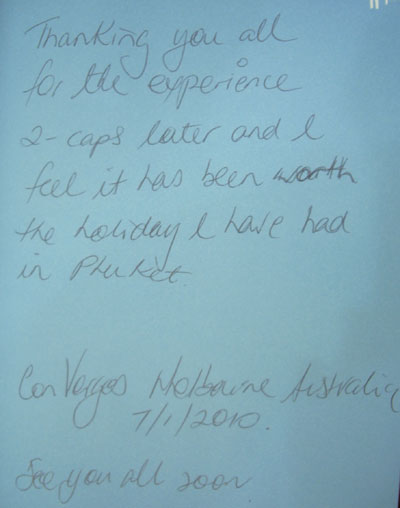 Thanking you all
for the experience
2-caps later and I
feel it has been worth
the holiday I have had
in Phuket.
Con Verges Melbourne Australia
7/1/2010.
See you all soon